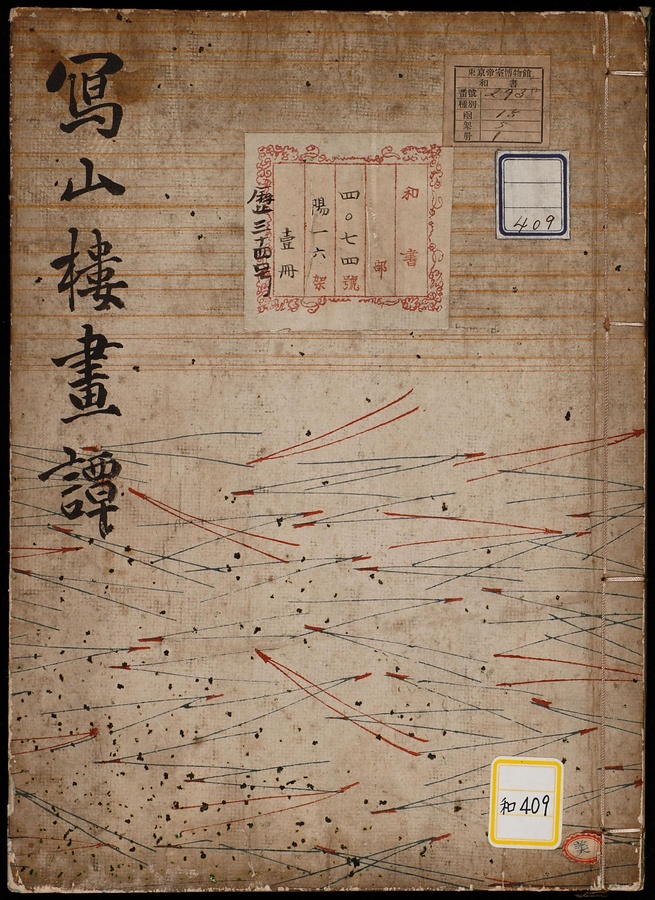 寫山樓畫譚
東京帝室博物館
和書
番號 2938
種別
函 18
架 5
冊 1
409
和書
部
四〇七四號
陽一六架
壹冊
三十四号
和409
美